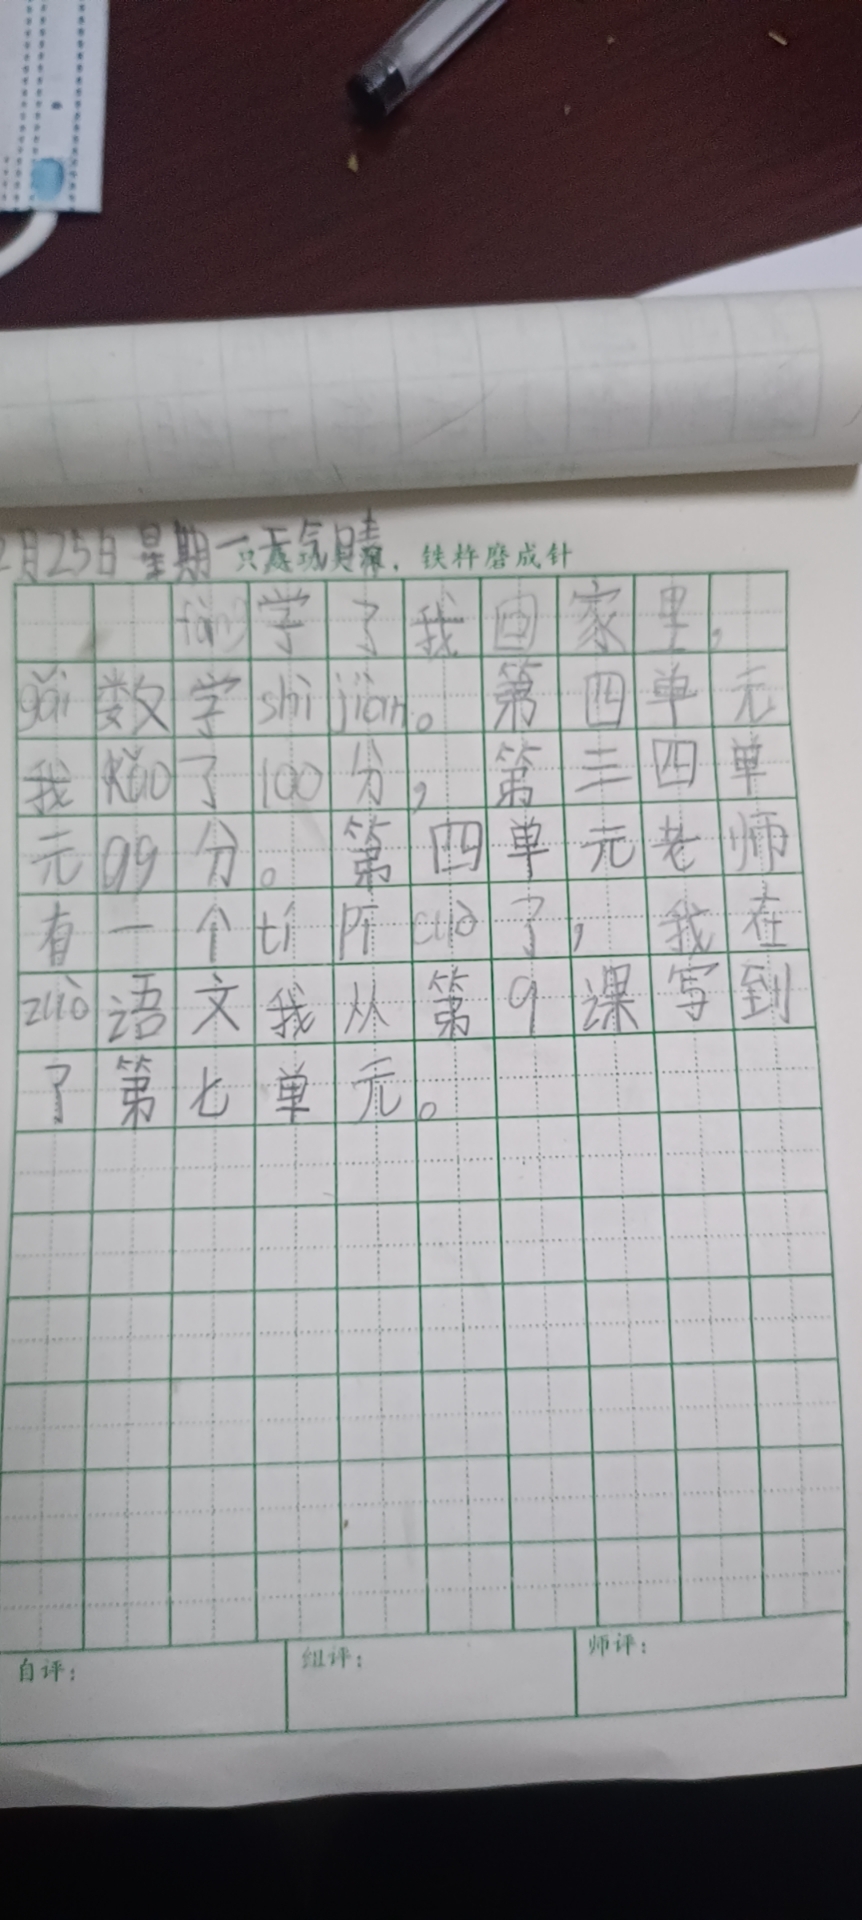 2月25日星期一天气晴
只要功夫深，铁杵磨成针
fàng学了我回家里，
gǎi数学shì jiàn。第四单元
我kǎo了100分，第三四单
元99分。第四单元老师
有一个tí pī cuò了，我在
zuò语文我从第9课写到
了第七单元。
自评：
组评：
师评：